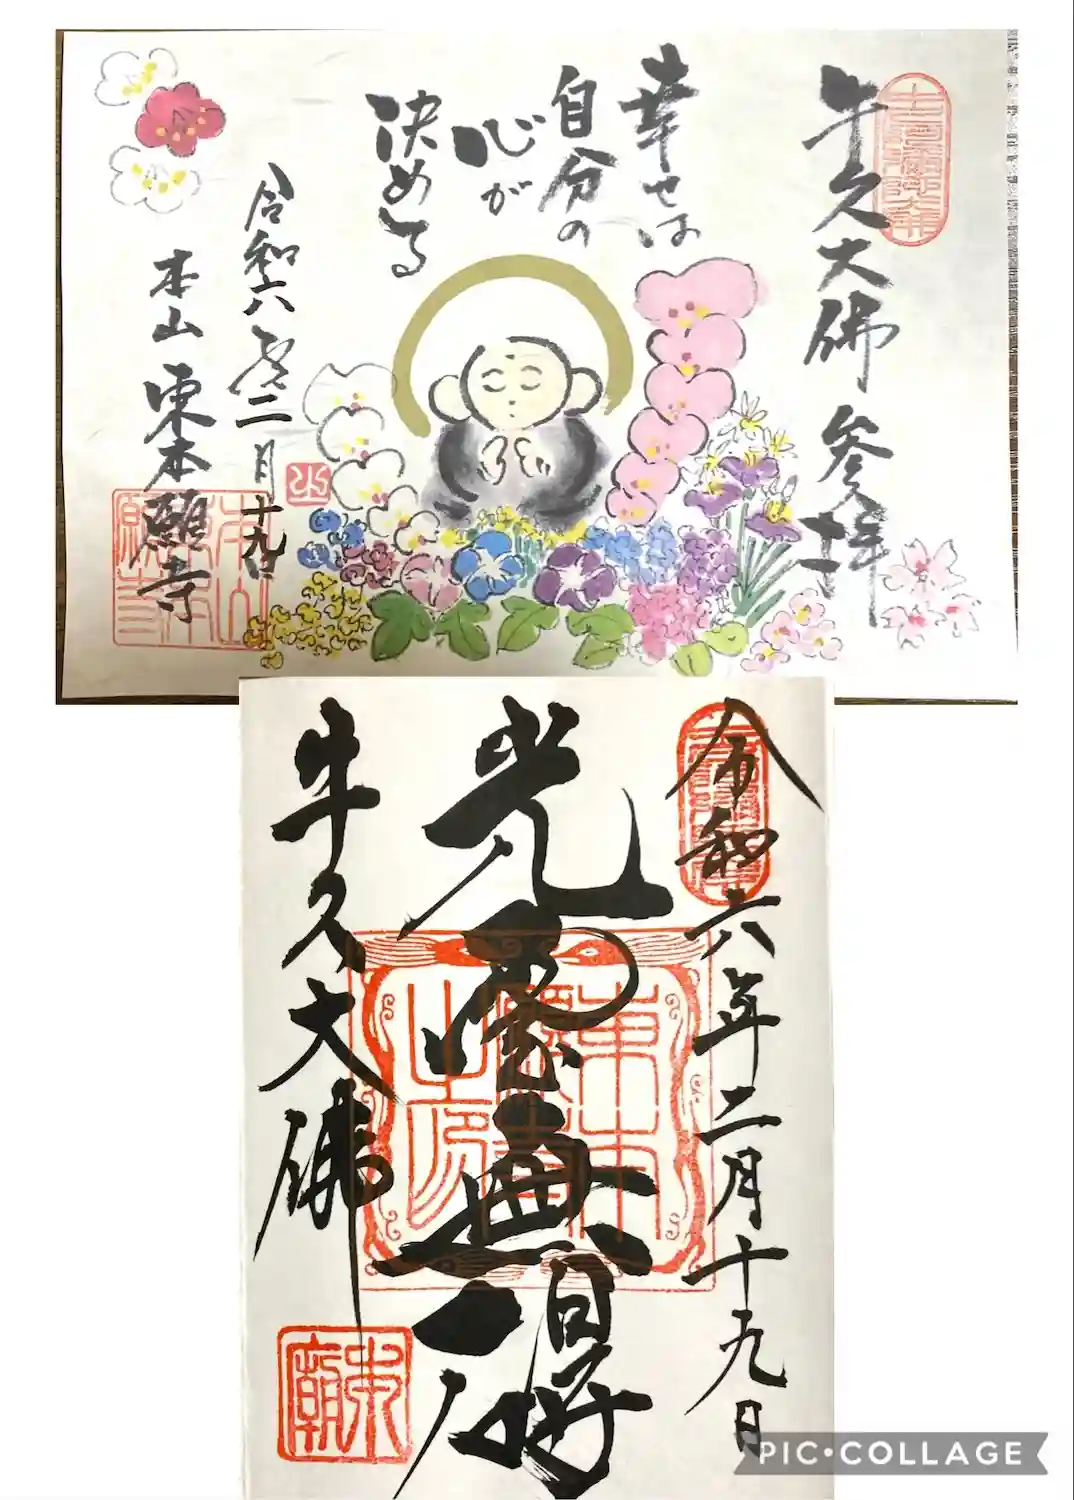 牛久大佛参拝
幸せは
自分の
心が
決める
令和六年二月十九日
本山東本願寺
令和六年二月十九日
光雲無碍
牛久大佛
東本願寺之印
本廟
PIC•COLLAGE